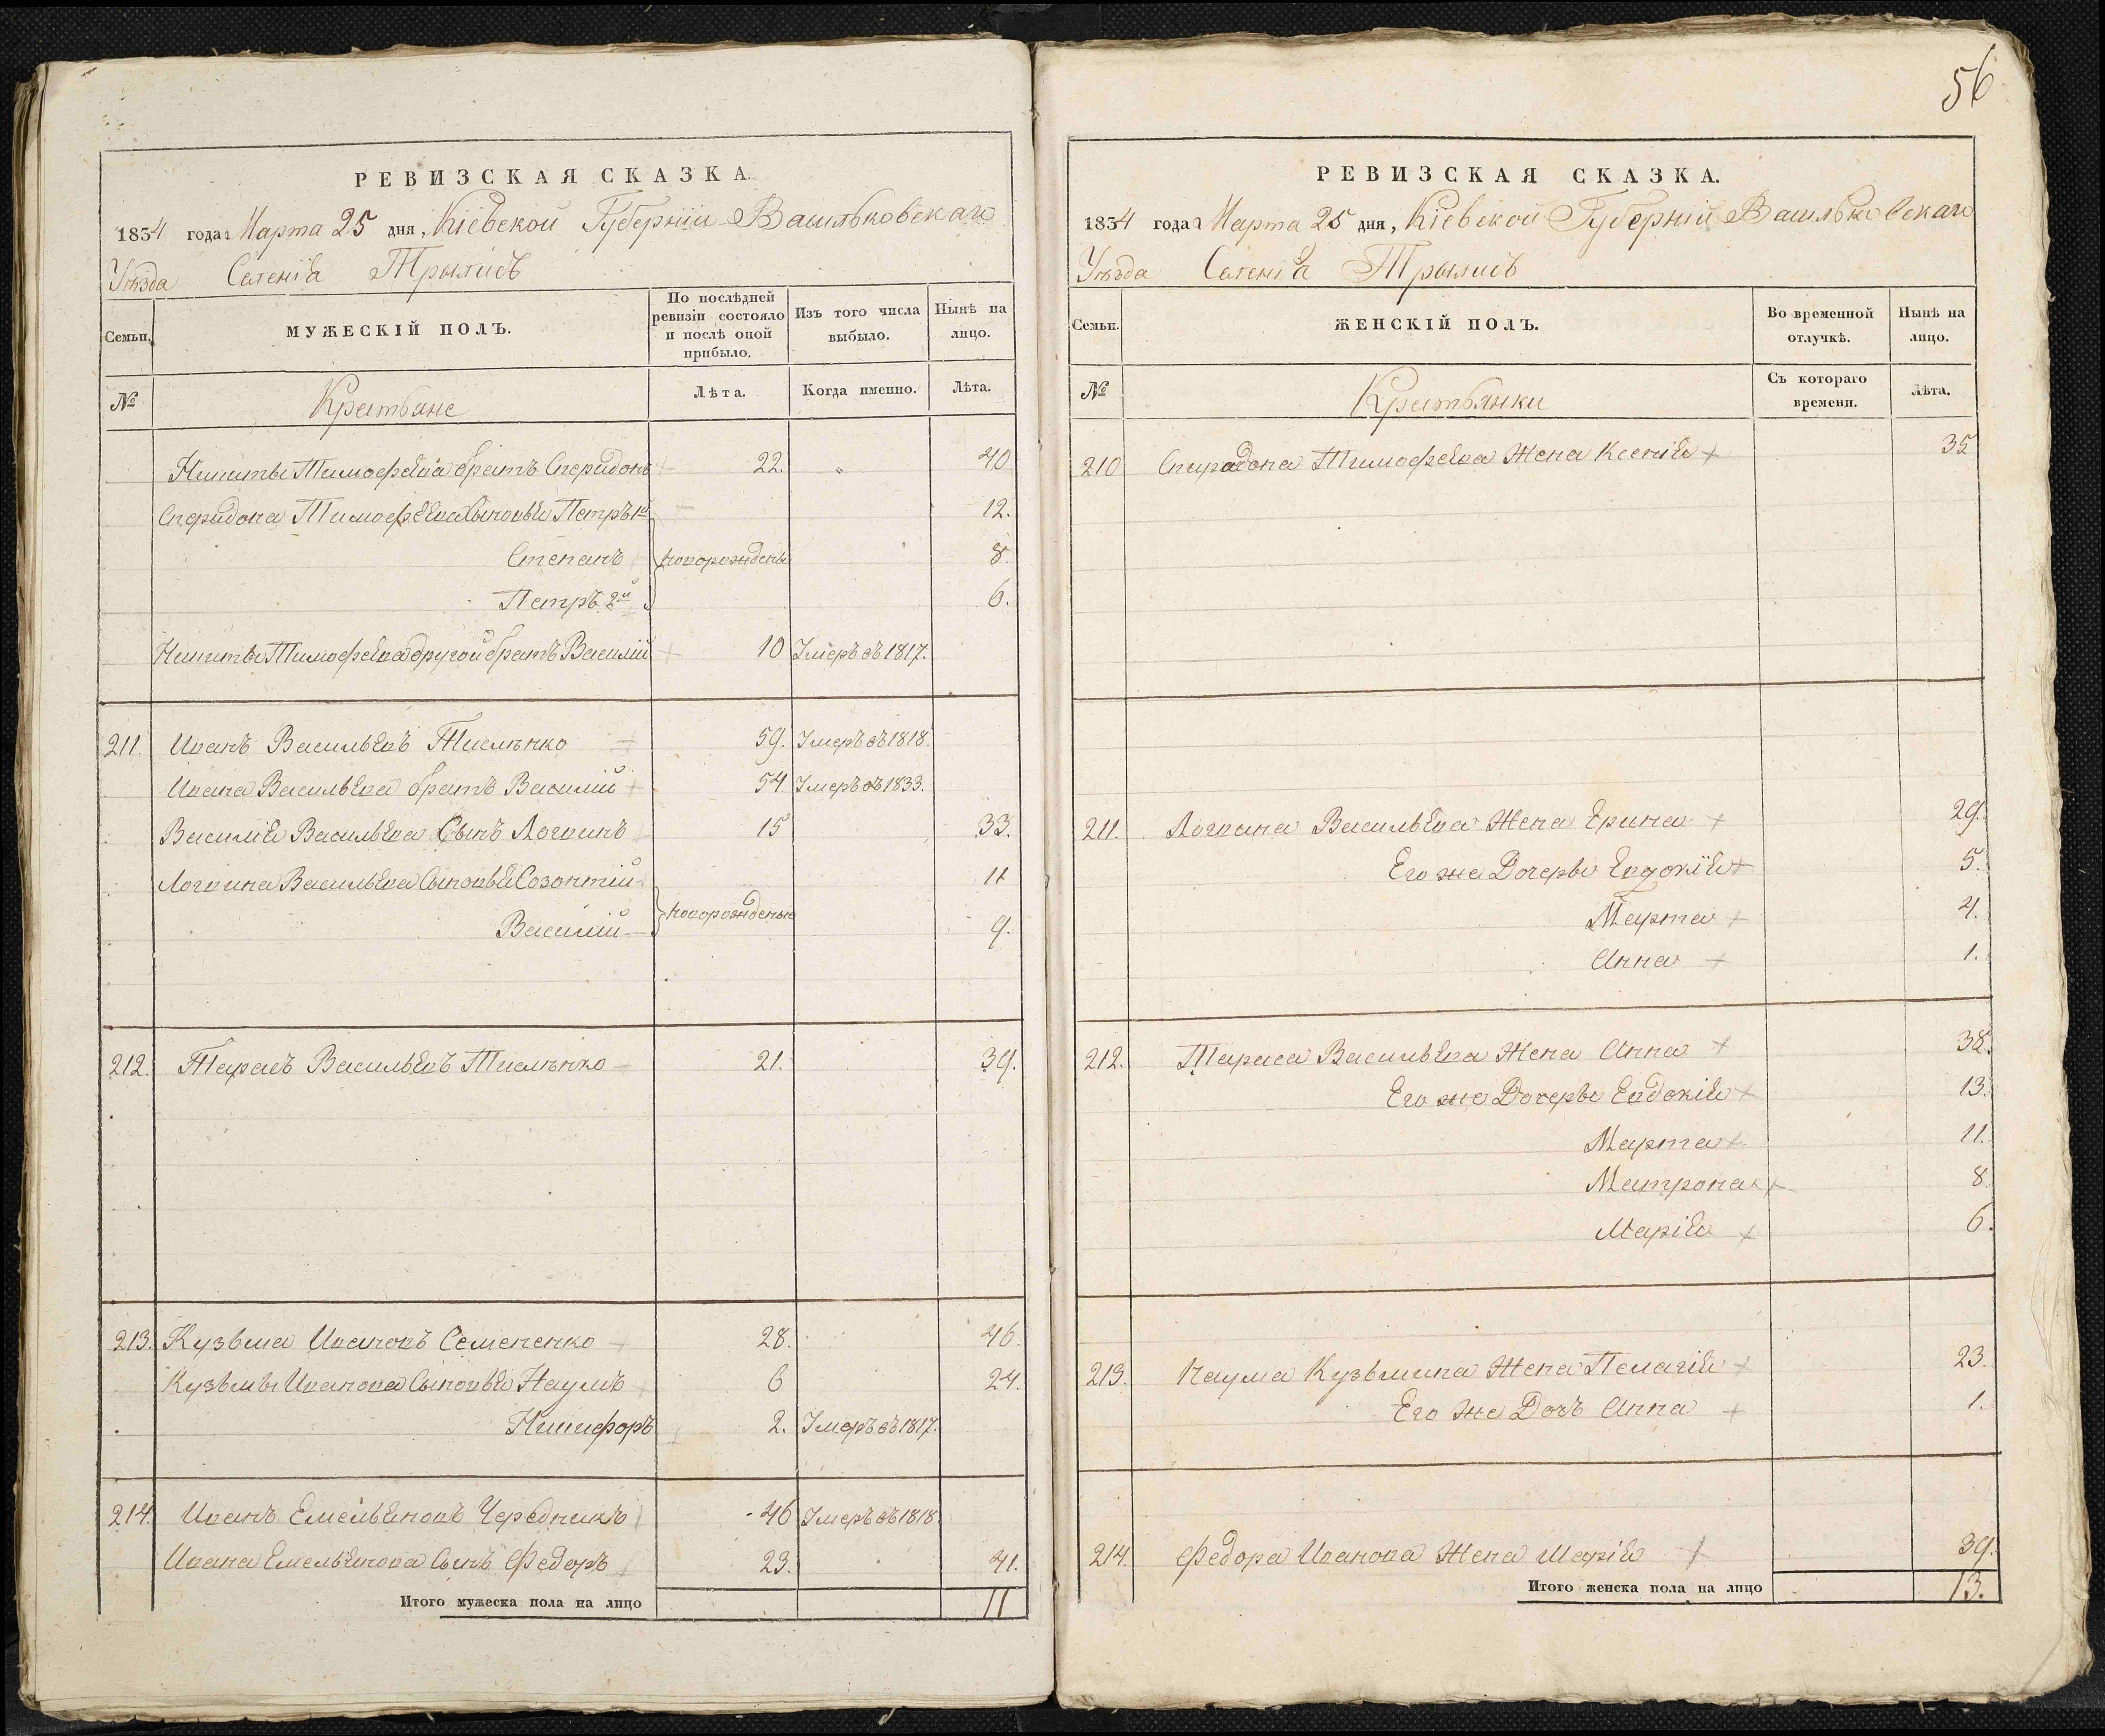 РЕВИЗСКАЯ СКАЗКА.
1834 года Марта 25 дня, Кіевской Губерніи Васильковскаго
Уѣзда Селенія Трылисъ
Семьи.
МУЖЕСКІЙ ПОЛЪ.
По послѣдней ревизіи состояло и послѣ оной прибыло.
Изъ того числа выбыло.
Нынѣ на лицо.
№ Крестьяне Лѣта. Когда именно. Лѣта.
Никиты Тимофѣева братъ Сперидонъ 22. " 40
Сперидона Тимофѣева Сыновья Петръ 1й 12.
Степанъ новорождены 8
Петръ 2й 6.
Никиты Тимофѣева другой братъ Василій 10 Умеръ въ 1817.
211. Иванъ Васильевъ Тисленко 59. Умеръ въ 1818.
Ивана Васильева братъ Василій 54 Умеръ въ 1833.
Василія Васильева Сынъ Логвинъ 15 33.
Логвина Васильева Сыновья Созонтій 11
Василій новорожденые 9.
212. Тарасъ Васильевъ Тисленко 21. 39.
213. Кузьма Ивановъ Семененко 28. 46.
Кузьмы Иванова Сыновья Наумъ 6 24.
Никифоръ 2. Умеръ въ 1817.
214. Иванъ Емельяновъ Чередникъ 46 Умеръ въ 1818.
Ивана Емельянова Сынъ Федоръ 23. 41.
Итого мужеска пола на лицо 11
56
РЕВИЗСКАЯ СКАЗКА.
1834 года Марта 25 дня, Кіевской Губерніи Васильковскаго
Уѣзда Селенія Трылисъ
Семьи.
ЖЕНСКІЙ ПОЛЪ.
Во временной отлучкѣ.
Нынѣ на лицо.
№ Крестьянки Съ котораго времени. Лѣта.
210 Спиридона Тимофѣева Жена Ксенія 35
211. Логвина Васильева Жена Ерина 29.
Его же Дочери Евдокія 5.
Марта 4.
Анна 1.
212. Тараса Васильева Жена Анна 38.
Его же Дочери Евдокія 13.
Марта 11.
Матрона 8
Марія 6.
213. Наума Кузьмина Жена Пелагія 23.
Его же Дочь Анна 1.
214. Федора Иванова Жена Марія 39.
Итого женска пола на лицо 13.